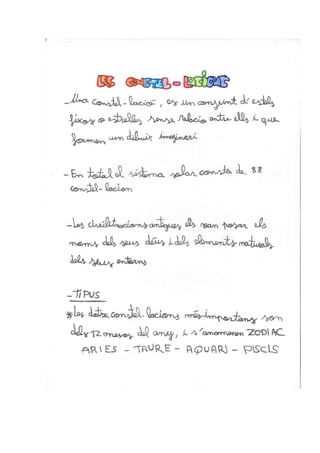 LES CONSTEL-LACIONS
-Una constel-lació, es un conjunt d'estels
fixos o estrelles sense relacio entre ells i que
formen un dibuix imaginari
-En total el sistema solar consta de 88
constel-lacion
-Les civilitzacions antigues els van posar els
noms dels seus déus i dels elements naturals
dels seus entorns
-TIPUS
*les dotze constel.lacions més importans son
dels 12 mesos del any, i s'anomenen ZODIAC
ARIES - TAURE - AQUARI - PISCIS